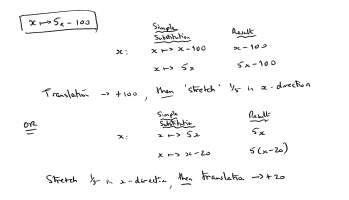 x ↦ 5x - 100
Simple
Substitution Result
x: x ↦ x-100 x-100
x ↦ 5x 5x-100
Translation → +100, then 'stretch' 1/5 in x-direction
OR
Simple
Substitution Result
x: x ↦ 5x 5x
x ↦ x-20 5(x-20)
Stretch 1/5 in x-direction, then translation → +20